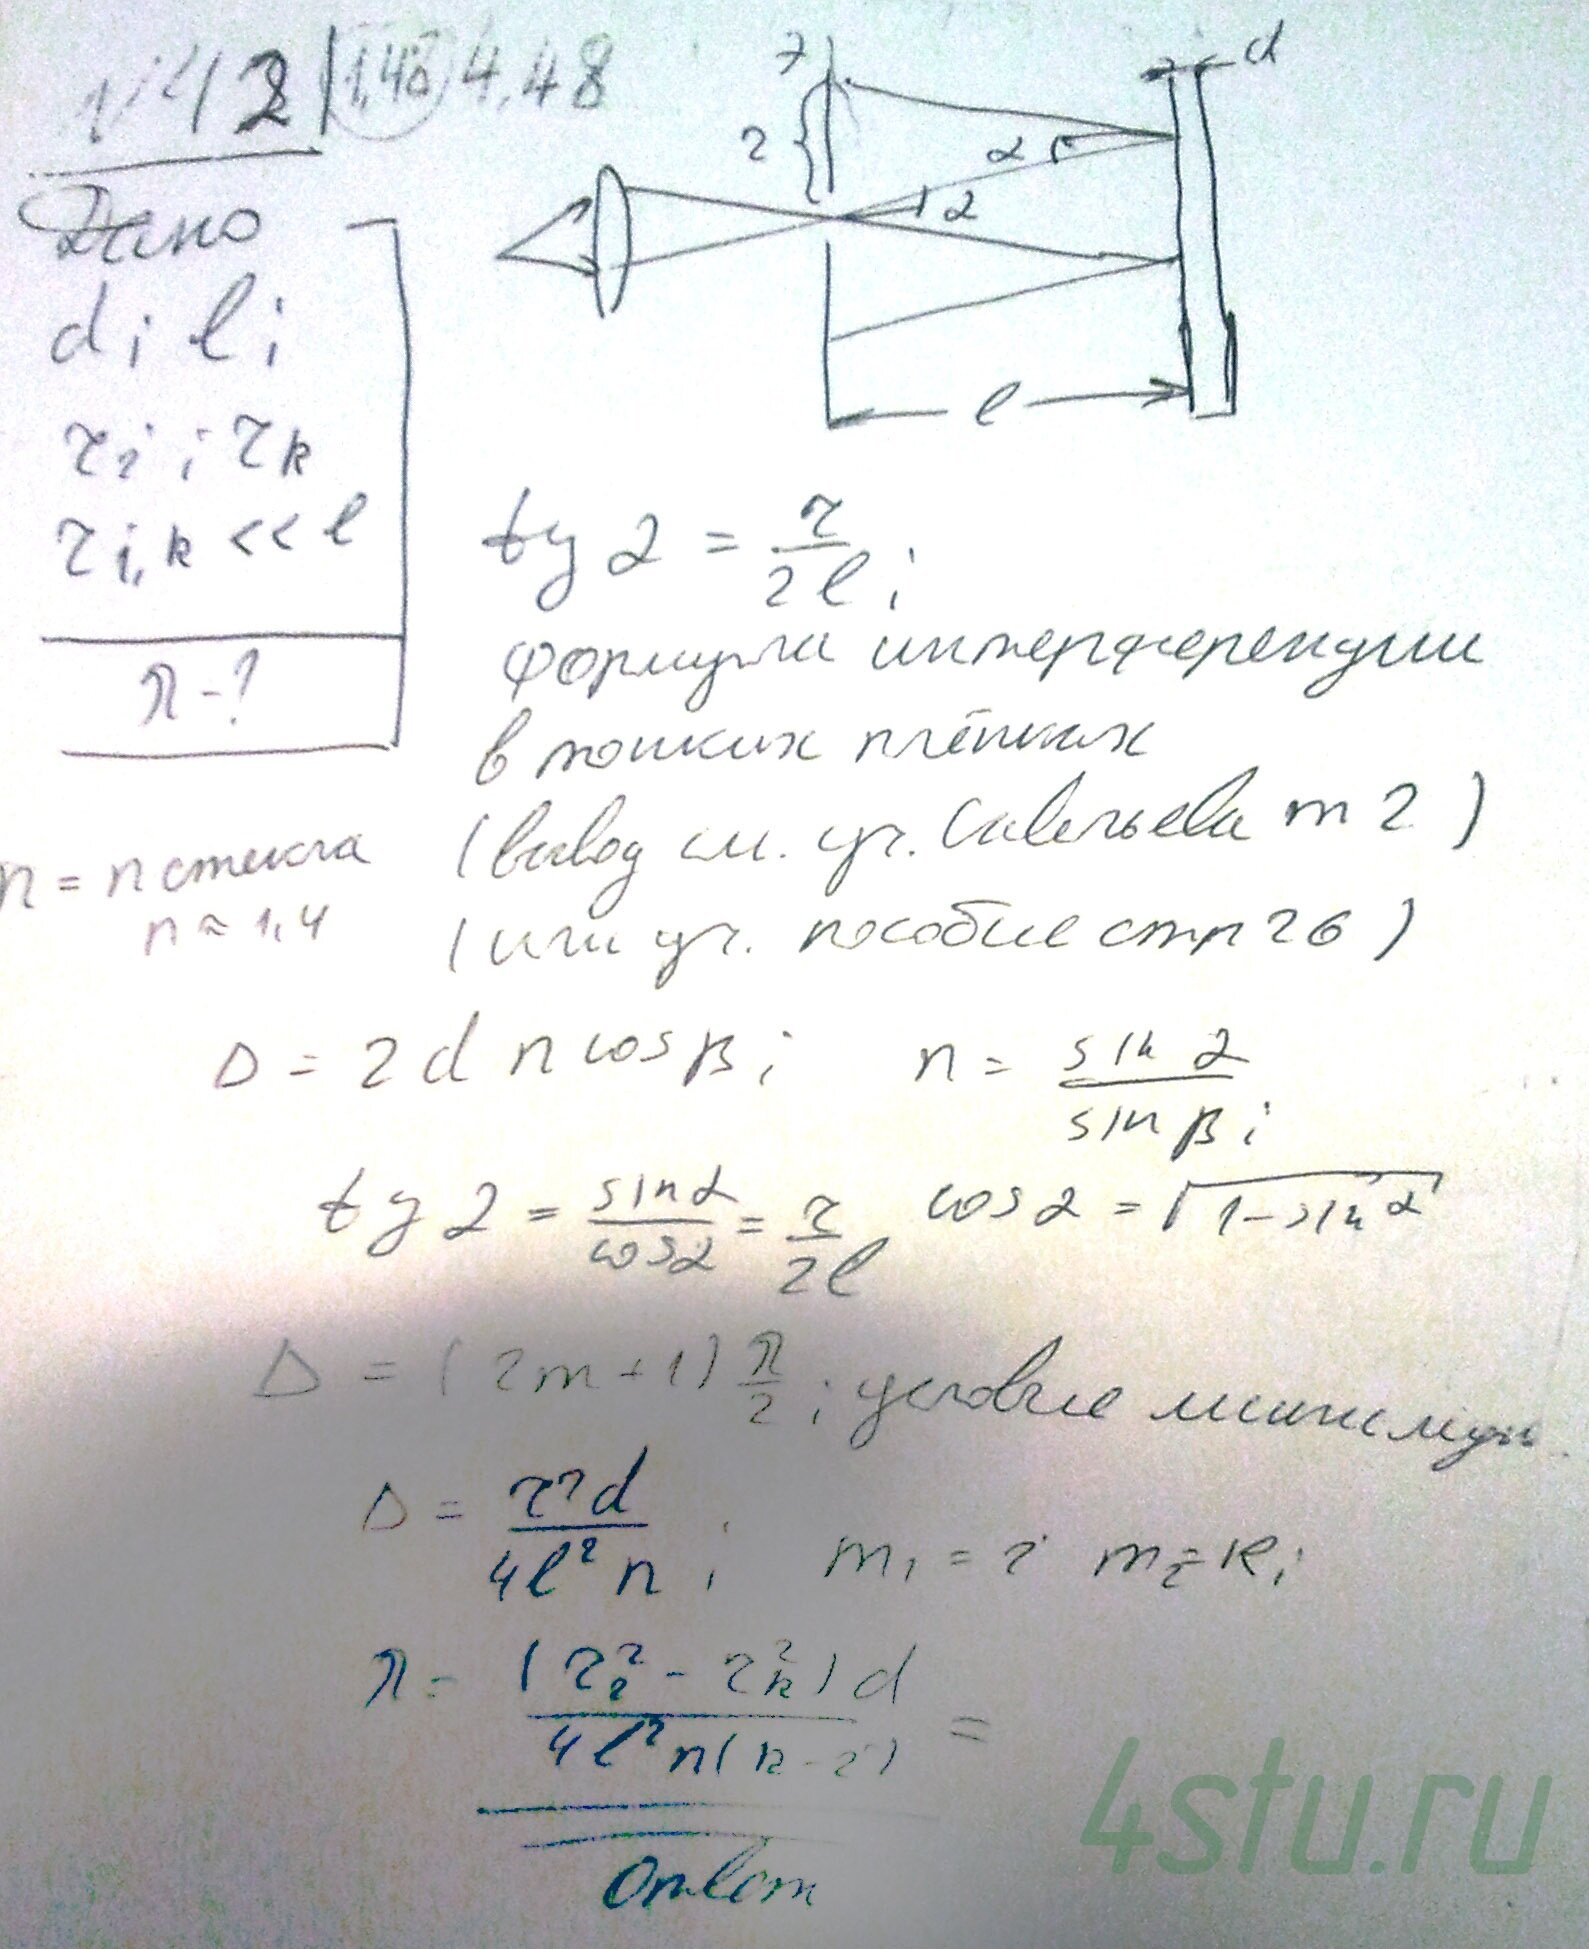 1.42 | 1,48 4.48
Э
2
d
α
α
l
Дано
d; l;
r_i; r_k
r_i,k << l
λ-?
n = n стекла
n ≈ 1,4
tg α = r/2l;
формула интерференции
в тонких плёнках
(вывод см. уч. Савельева т 2)
(или уч. пособие стр 26)
Δ = 2 d n cos β; n = sin α / sin β;
tg α = sin α / cos α = r/2l cos α = √(1-sin²α)
Δ = (2m+1) λ/2; условие минимума
Δ = r²d / 4l²n; m₁ = i m₂ = k;
λ = (r_i² - r_k²) d / 4l²n(k-i) =
Ответ
4stu.ru